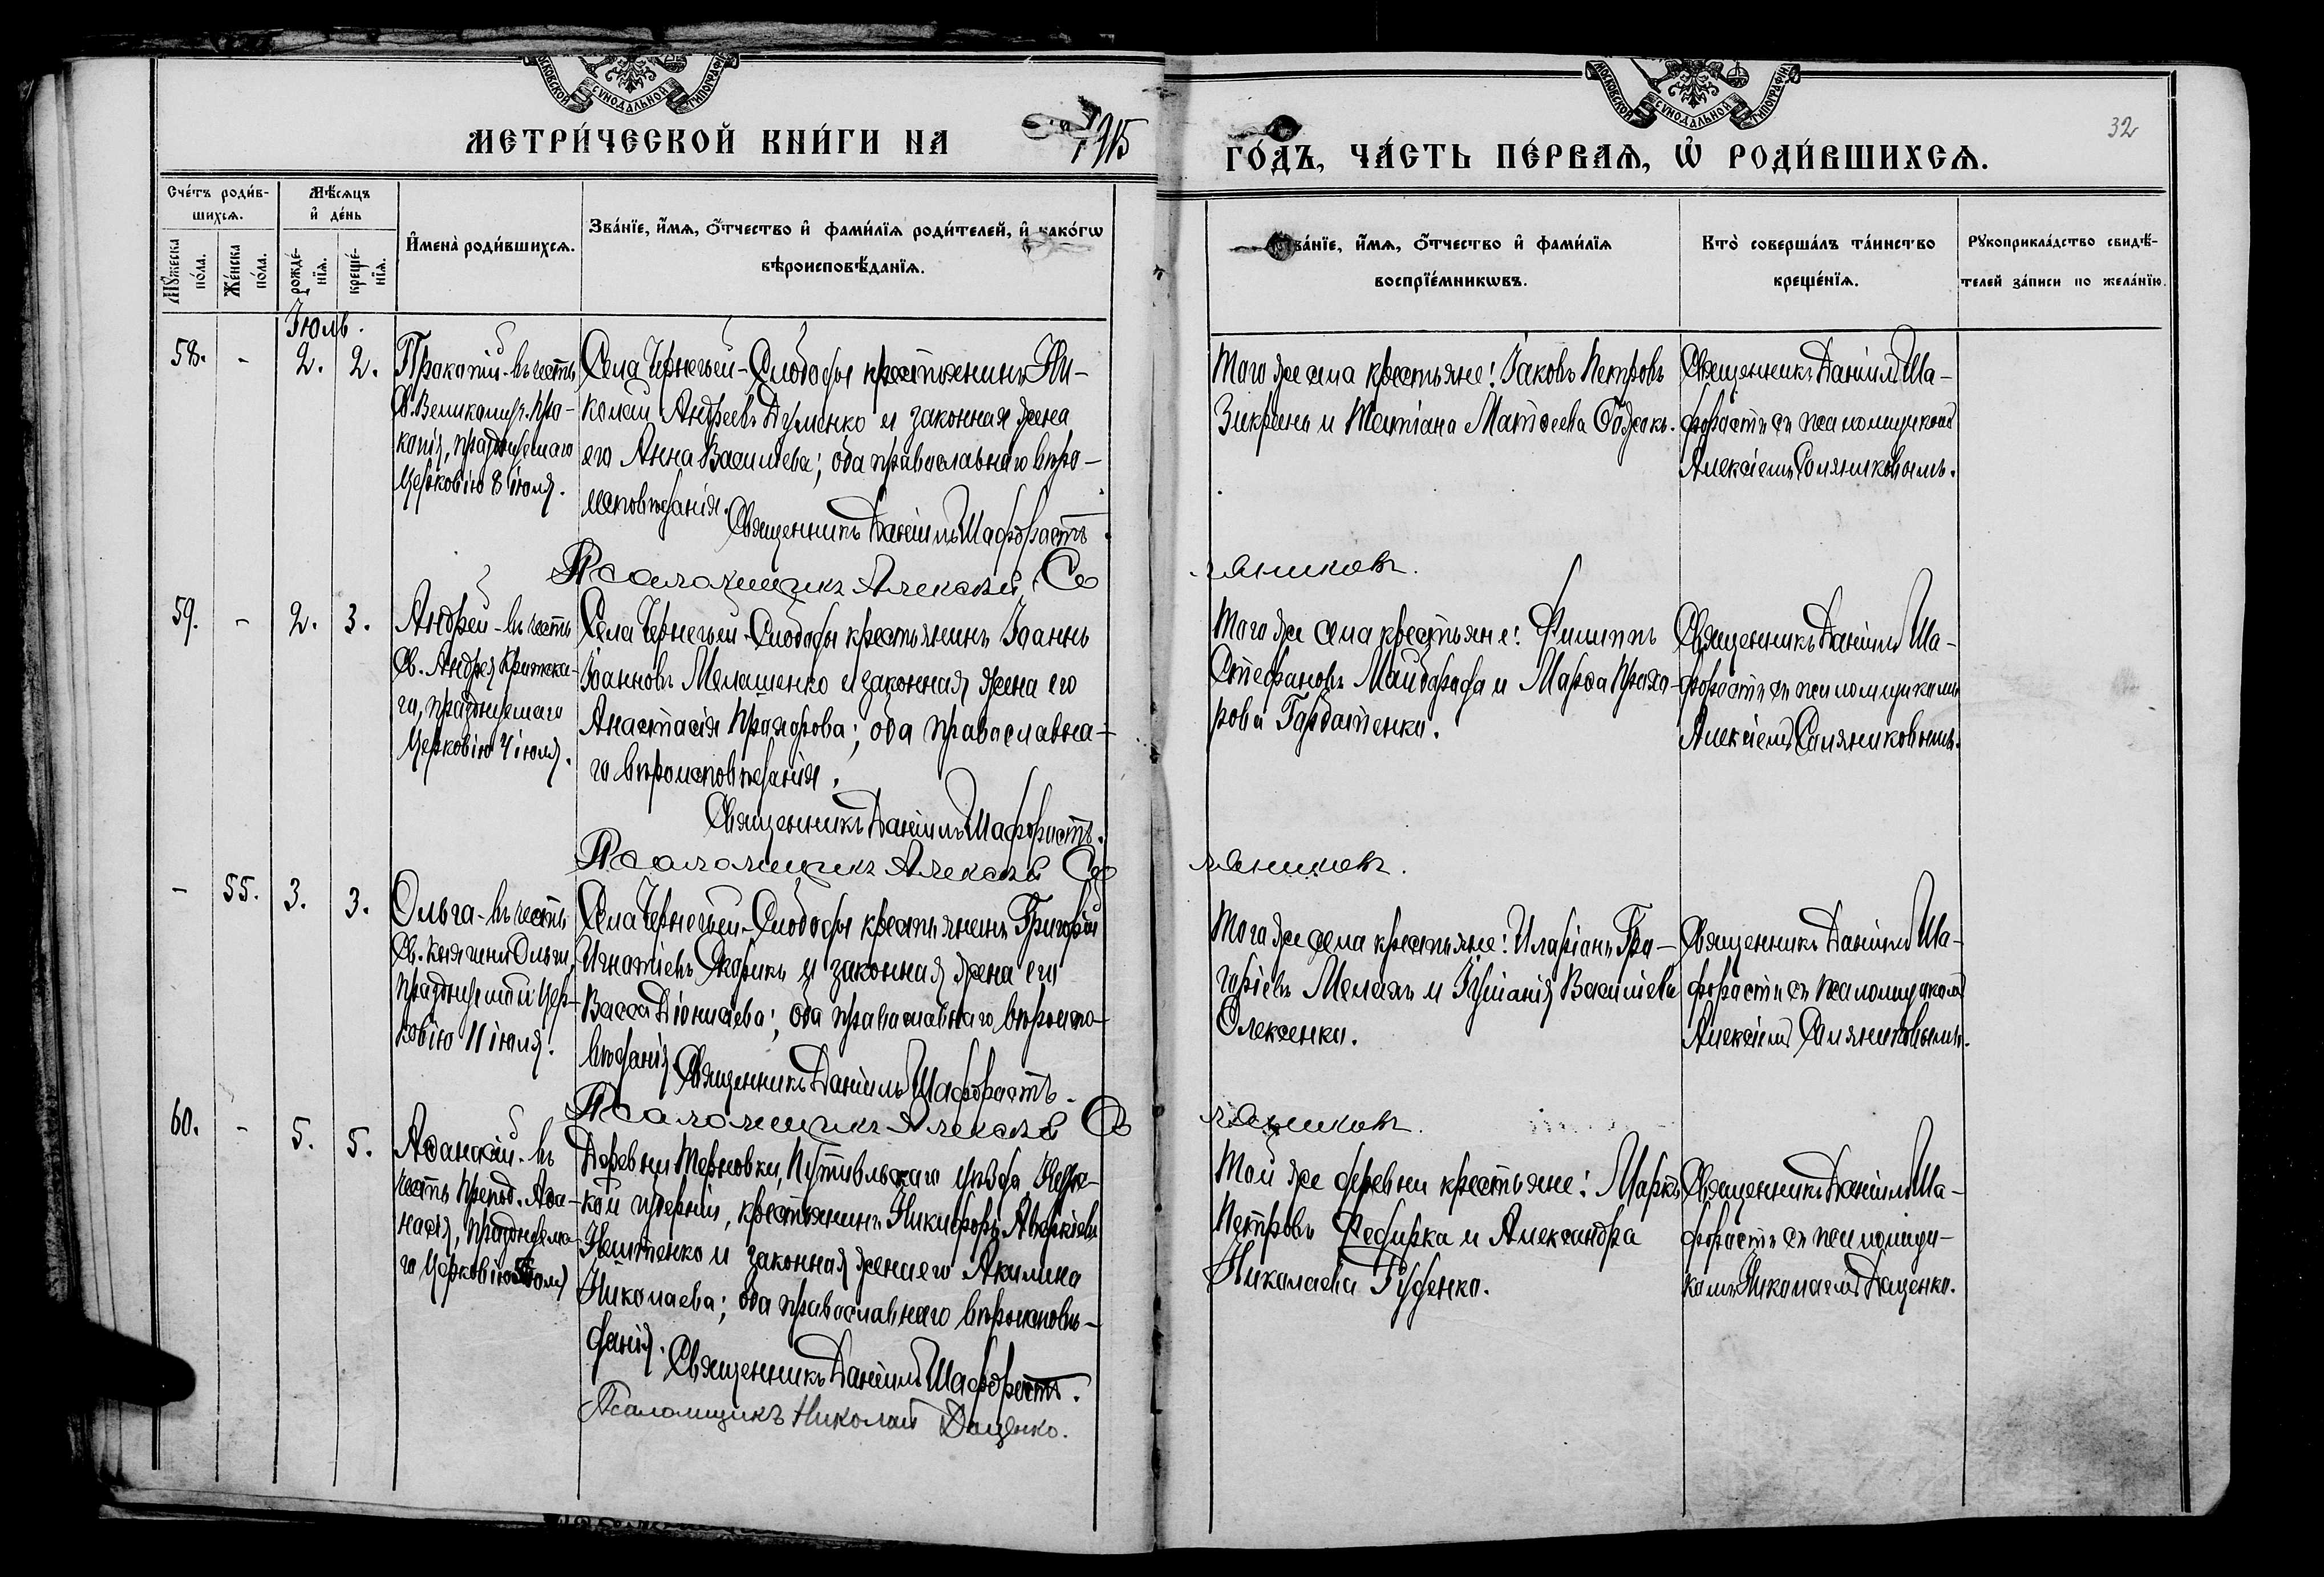 МОСКОВСКОЙ СУНОДАЛЬНОЙ ТИПОГРАФІИ
МОСКОВСКОЙ СУНОДАЛЬНОЙ ТИПОГРАФІИ
МЕТРИ́ЧЕСКОЙ КНИ́ГИ НА 1915
ГО́ДЪ, ЧА́СТЬ ПЕ́РВАѦ, Ѡ҆ РОДИ́ВШИХСѦ.
32
Сче́тъ роди́в-
шихсѧ.
Мѣ́сѧцъ
и҆ де́нь
Мꙋ́жеска по́ла.
Же́нска по́ла.
рожде́-
нїѧ.
креще́-
нїѧ.
И҆мена̀ роди́вшихсѧ.
Зва́нїе, и҆́мѧ, ѻ҆́тчество и҆ фами́лїѧ роди́телей, и҆ како́гѡ
вѣроисповѣ́данїѧ.
Зва́нїе, и҆́мѧ, ѻ҆́тчество и҆ фами́лїѧ
воспрїе́мникѡвъ.
Кто̀ соверша́лъ та́инство
креще́нїѧ.
Рꙋкоприкла́дство свидѣ́-
телей за́писи по жела́нїю.
Іюль.
58. - 2. 2.
Прокопій - въ честь
Св. Великомуч. Про-
копія, празднуемаго
Церковію 8 іюля.
Села Чернечьей-Слободы крестьянинъ Ни-
колай Андреевъ Думенко и законная жена
его Анна Васильева; оба православнаго вѣро-
исповѣданія.
Священникъ Даніилъ Шафорастъ
Псаломщикъ Алексѣй Со
ляниковъ.
Того же села крестьяне: Іаковъ Петровъ
Зикрань и Татіана Матѳеева
Священникъ Даніилъ Ша-
форастъ съ псаломщикомъ
Алексіемъ Соляниковымъ.
59. - 2. 3.
Андрей - въ честь
Св. Андрея Критска-
го, празднуемаго
Церковію 4 іюля.
Села Чернечьей-Слободы крестьянинъ Іоаннъ
Іоанновъ Мелашенко и законная жена его
Анастасія Прохорова; оба православна-
го вѣроисповѣданія.
Священникъ Даніилъ Шафорастъ.
Псаломщикъ Алексѣй Со
ляниковъ.
Того же села крестьяне: Филиппъ
Стефановъ Майборода и Марѳа Прохо-
рова Горбатенко.
Священникъ Даніилъ Ша-
форастъ съ псаломщикомъ
Алексіемъ Соляниковымъ.
- 55. 3. 3.
Ольга - въ честь
Св. Княгини Ольги,
празднуемой Цер-
ковію 11 іюля.
Села Чернечьей-Слободы крестьянинъ Григорій
Игнатіевъ Скорикъ и законная жена его
Васса Діонисіева; оба православнаго вѣроиспо-
вѣданія.
Священникъ Даніилъ Шафорастъ.
Псаломщикъ Алексѣй Со
ляниковъ.
Того же села крестьяне: Иларіонъ Гри-
горіевъ Мелахъ и Іуліанія Васильева
Олексенко.
Священникъ Даніилъ Ша-
форастъ съ псаломщикомъ
Алексіемъ Соляниковымъ.
60. - 5. 5.
Аѳанасій - въ
честь Препод. Аѳа-
насія, празднуема-
го Церковію 5 іюля
Деревни Терновки, Путивльскаго уѣзда Курс-
кой губерніи, крестьянинъ Никифоръ Аверкіевъ
и законная жена его Акилина
Николаева; оба православнаго вѣроисповѣ-
данія.
Священникъ Даніилъ Шафорастъ.
Псаломщикъ Николай Даценко.
Той же деревни крестьяне: Маркъ
Петровъ Федирка и Александра
Николаева Руденко.
Священникъ Даніилъ Ша-
форастъ съ псаломщи-
комъ Николаемъ Даценко.